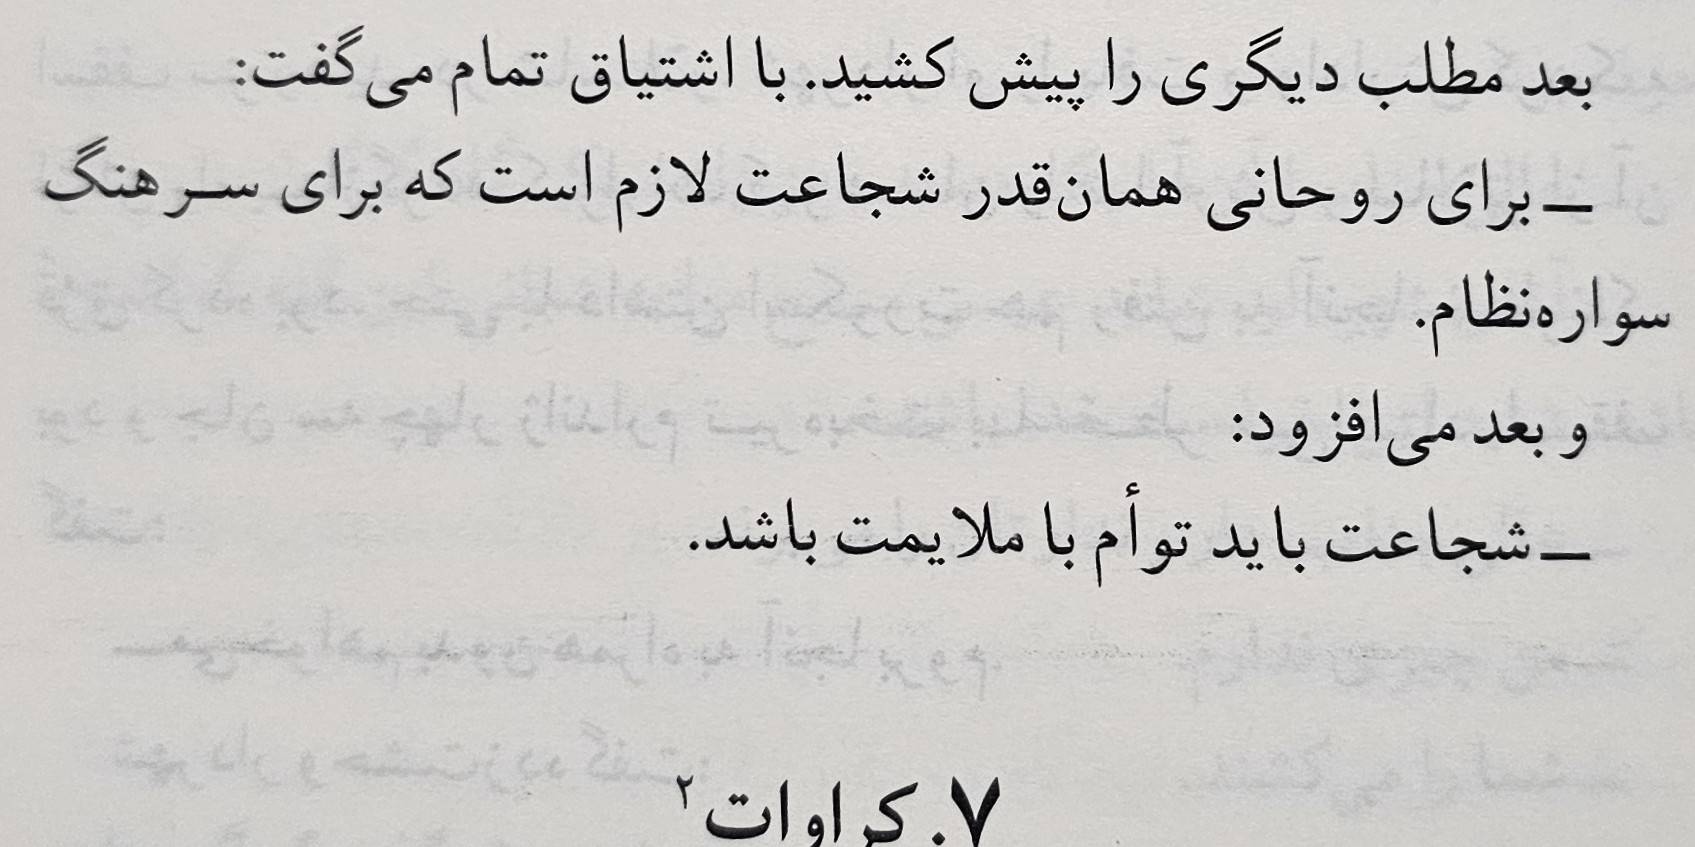 بعد مطلب دیگری را پیش کشید. با اشتیاق تمام می‌گفت:
ــ برای روحانی همان‌قدر شجاعت لازم است که برای سرهنگ
سواره‌نظام.
و بعد می‌افزود:
ــ شجاعت باید توأم با ملایمت باشد.
۷. کراوات۲